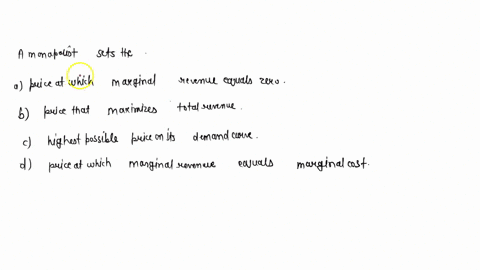 A monopolist sets the .
a) price at which marginal revenue equals zero.
b) price that maximizes total revenue.
c) highest possible price on its demand curve.
d) price at which marginal revenue equals marginal cost.